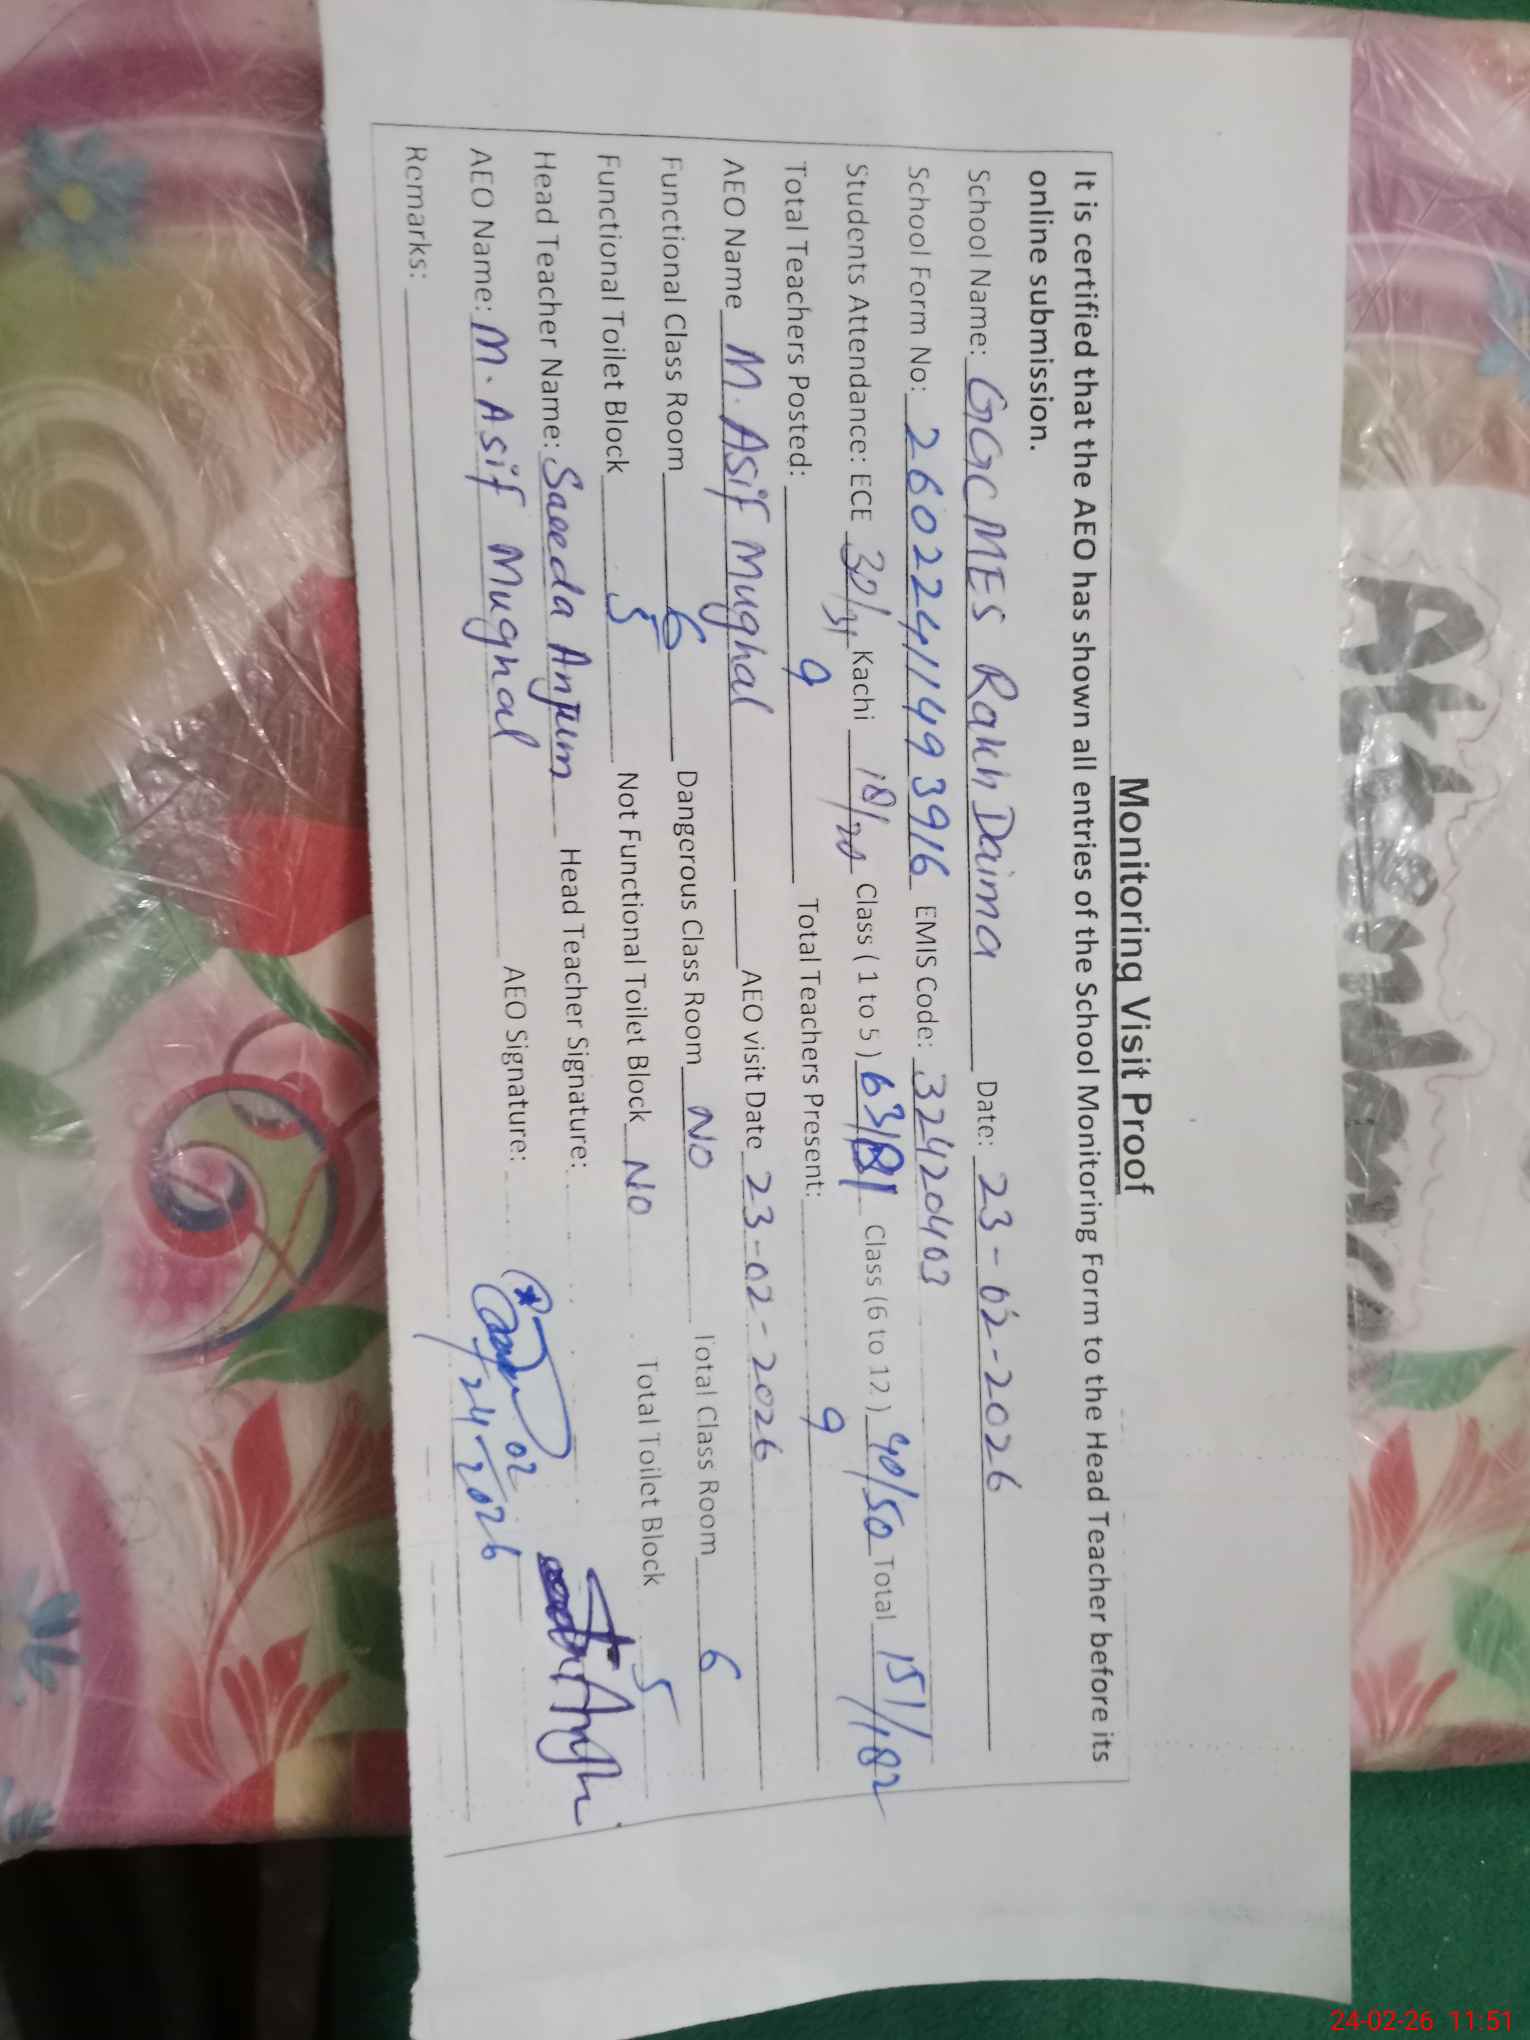 Attendance
Monitoring Visit Proof
It is certified that the AEO has shown all entries of the School Monitoring Form to the Head Teacher before its
online submission.
School Name: GGCMES Rakh Daima Date: 23-02-2026
School Form No: 2602241149 3916 EMIS Code: 32420403
Students Attendance: ECE 30/31 Kachi 18/20 Class ( 1 to 5 ) 63/81 Class (6 to 12 ) 40/50 Total 151/182
Total Teachers Posted: 9 Total Teachers Present: 9
AEO Name M. Asif Mughal AEO visit Date 23-02-2026
Functional Class Room 6 Dangerous Class Room No Total Class Room 6
Functional Toilet Block 5 Not Functional Toilet Block No Total Toilet Block 5
Head Teacher Name: Saeeda Anjum Head Teacher Signature:
AEO Name: M. Asif Mughal AEO Signature: 24-02-2026
Remarks:
24-02-26 11:51